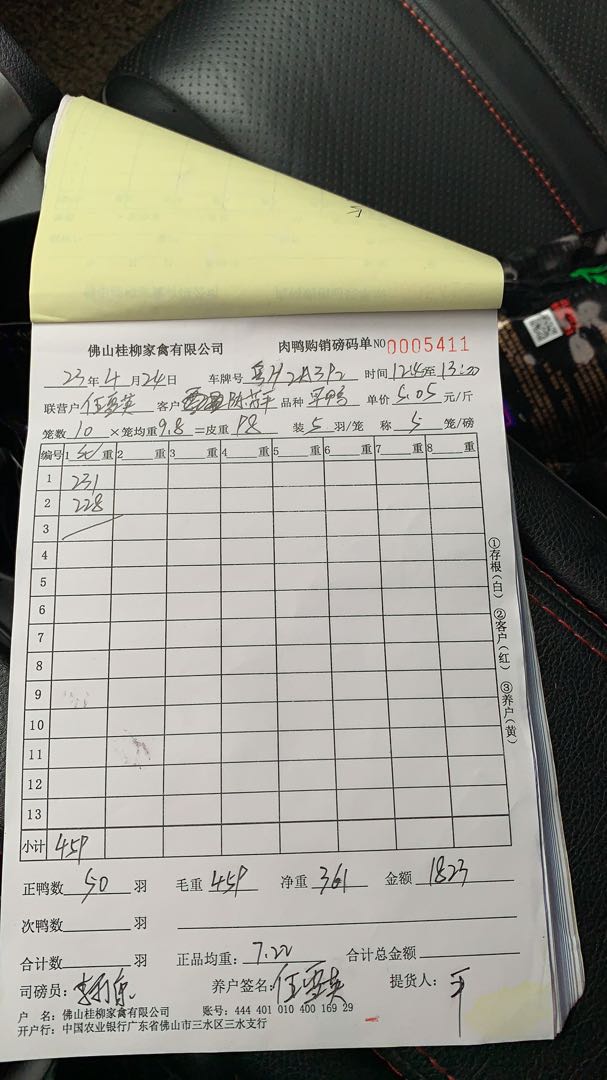 佛山桂柳家禽有限公司 肉鸭购销磅码单 NO 0005411
23年4月24日 车牌号 粤H2A3P2 时间 至13:20
联营户 伍雪英 客户 品种 单价 5.05 元/斤
笼数 10 ×笼均重 9.8 =皮重 98 装 5 羽/笼 称 5 笼/磅
编号 1 重 2 重 3 重 4 重 5 重 6 重 7 重 8 重
1 231
2 228
3
4
5
6
7
8
9
10
11
12
13
小计 459
①存根(白) ②客户(红) ③养户(黄)
正鸭数 50 羽 毛重 459 净重 361 金额 1823
次鸭数 羽
合计数 羽 正品均重: 7.22 合计总金额
司磅员: 养户签名: 伍雪英 提货人: 平
户 名: 佛山桂柳家禽有限公司 账号: 444 401 010 400 169 29
开户行: 中国农业银行广东省佛山市三水区三水支行